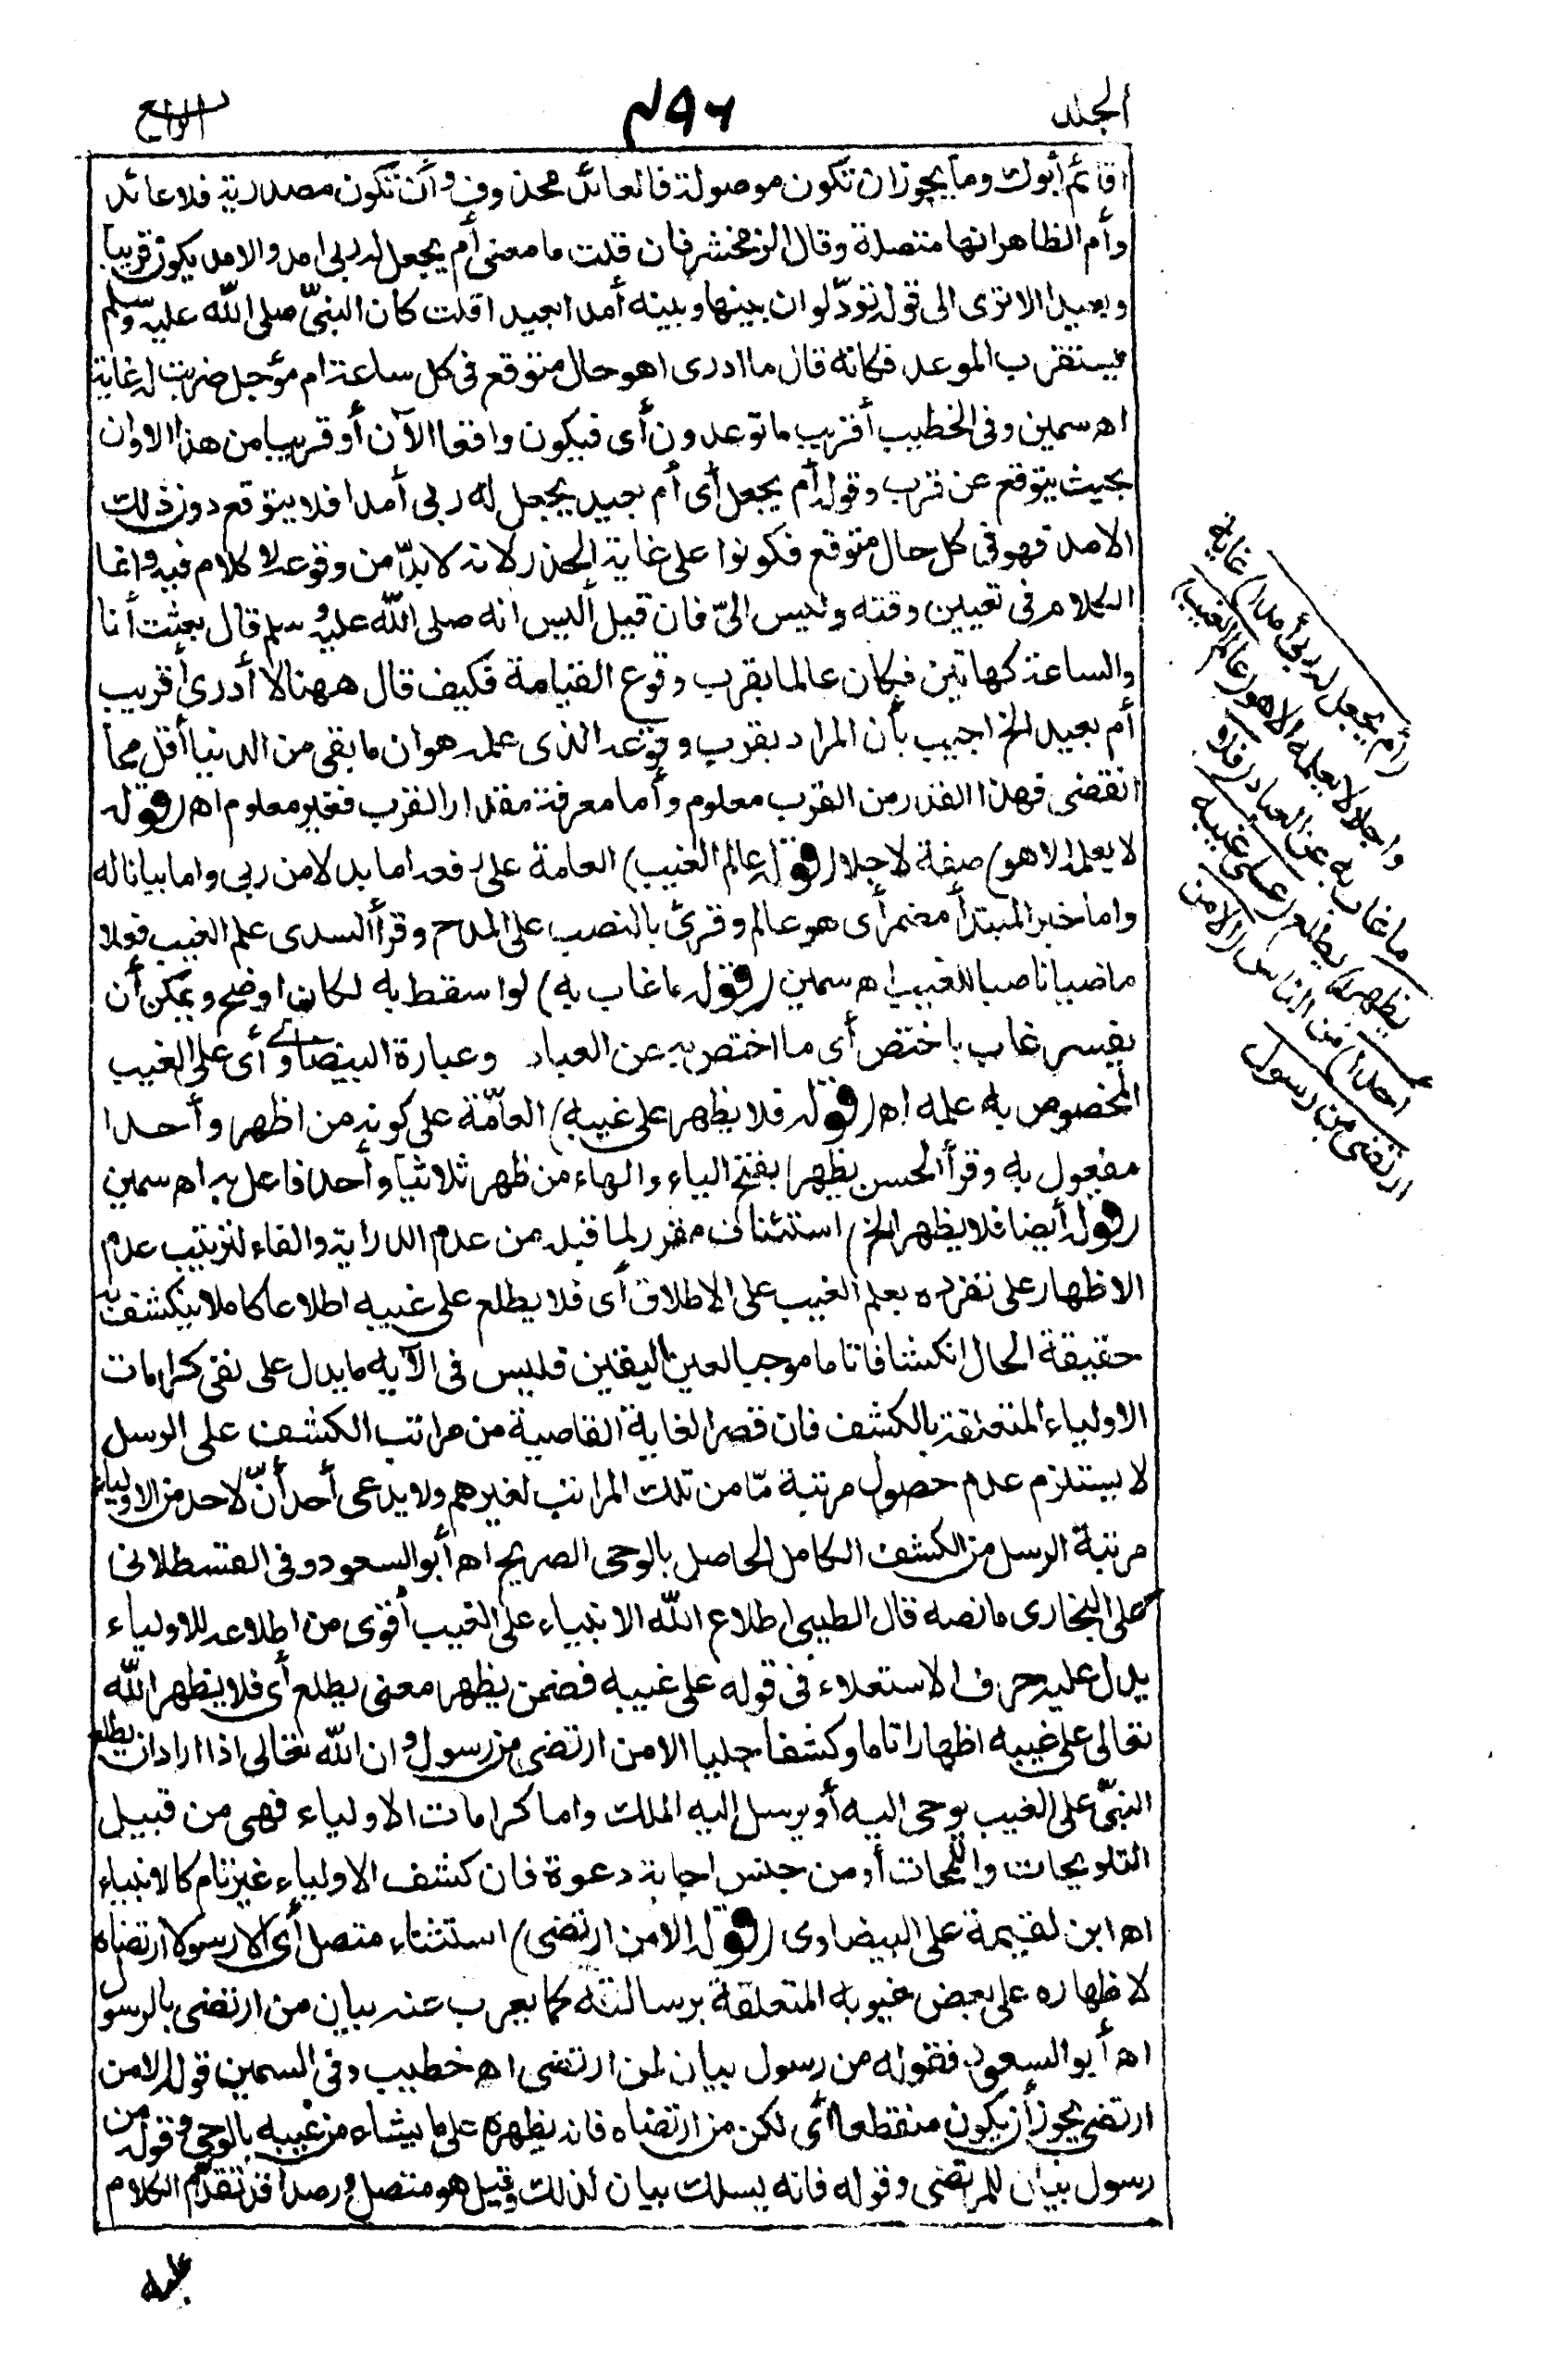 الجلد
٤٩٦
الرابع
اقائم أبوك وما يجوز ان تكون موصولة فالعائد محذوف وأن تكون مصدرية فلا عائد
وأم الظاهر انها متصلة وقال الزمخشري فان قلت ما معنى أم يجعل له ربى امدا والامد يكون قريبا
وبعيدا الا ترى الى قوله تودّ لو ان بينها وبينه أمدا بعيدا قلت كان النبىّ صلى الله عليه وسلم
يستقرب الموعد فكانه قال ما ادرى اهو حال متوقع فى كل ساعة ام مؤجل ضربت له غاية
اه سمين وفى الخطيب أقريب ما توعدون أى فيكون واقعا الآن أو قريبا من هذا الاوان
بحيث يتوقع عن قرب وقوله أم يجعل أى أم بعيد يجعل له ربى أمدا فلا يتوقع دون ذلك
الامد فهو فى كل حال متوقع فكونوا على غاية الحذر لانه لا بدّ من وقوعه لا كلام فيه وانما
الكلام فى تعيين وقته وليس الىّ فان قيل أليس انه صلى الله عليه وسلم قال بعثت أنا
والساعة كهاتين فكان عالما بقرب وقوع القيامة فكيف قال ههنا لا أدرى أقريب
أم بعيد الخ اجيب بأن المراد بقرب وقوعه الذى علمه هو ان ما بقى من الدنيا أقل مما
انقضى فهذا القدر من القرب معلوم وأما معرفة مقدار القرب فغير معلوم اه (قوله
لا يعلمه الا هو) صفة لاجلا (قوله عالم الغيب) العامة على رفعه اما بدلا من ربى واما بيانا له
واما خبر المبتدأ مضمر أى هو عالم وقرئ بالنصب على المدح وقرأ السدى علم الغيب فعلا
ماضيا ناصبا للغيب اه سمين (قوله ما غاب به) لو اسقط به لكان اوضح ويمكن أن
يفسر غاب باختص أى ما اختص به عن العباد وعبارة البيضاوى أى على الغيب
المخصوص به علمه اه (قوله فلا يظهر على غيبه) العامّة على كونه من اظهر وأحدا
مفعول به وقرأ الحسن يظهر بفتح الياء والهاء من ظهر ثلاثيا وأحد فاعل به اه سمين
(قوله أيضا فلا يظهر الخ) استئناف مقرر لما قبله من عدم الدراية والفاء لترتيب عدم
الاظهار على تفرده بعلم الغيب على الاطلاق أى فلا يطلع على غيبه اطلاعا كاملا ينكشف به
حقيقة الحال انكشافا تاما موجبا لعين اليقين فليس فى الآية ما يدل على نفى كرامات
الاولياء المتعلقة بالكشف فان قصر الغاية القاصية من مراتب الكشف على الرسل
لا يستلزم عدم حصول مرتبة مّا من تلك المراتب لغيرهم ولا يدعى أحد أنّ لاحد من الاولياء
مرتبة الرسل من الكشف الكامل الحاصل بالوحى الصريح اه أبو السعود وفى القسطلانى
على البخارى ما نصه قال الطيبى اطلاع الله الانبياء على الغيب أقوى من اطلاعه للاولياء
يدل عليه حرف الاستعلاء فى قوله على غيبه فضمن يظهر معنى يطلع أى فلا يظهر الله
تعالى على غيبه اظهارا تاما وكشفا جليا الا من ارتضى من رسول و ان الله تعالى اذا اراد ان يطلع
النبىّ على الغيب يوحى اليه أو يرسل إليه الملك واما كرامات الاولياء فهى من قبيل
التلويحات واللمحات أو من جنس اجابة دعوة فان كشف الاولياء غير تام كالانبياء
اه ابن لقيمة على البيضاوى (قوله الا من ارتضى) استثناء متصل أى الا رسولا ارتضاه
لاظهاره على بعض غيوبه المتعلقة برسالته كما يعرب عنه بيان من ارتضى بالرسول
اه أبو السعود فقوله من رسول بيان لمن ارتضى اه خطيب وفى السمين قوله الا من
ارتضى يجوز أن يكون منقطعا أى لكن من ارتضاه فانه يظهره على ما يشاء من غيبه بالوحى وقوله من
رسول بيان للمرتضى وقوله فانه يسلك بيان لذلك وقيل هو متصل ورصدا قد تقدّم الكلام
عليه
(أم يجعل له ربى أمدا) غاية
واجلا لا يعلمه الا هو (عالم الغيب)
ما غاب به عن العباد (فلا
يظهر) يطلع (على غيبه
احدا) من الناس (الا من
ارتضى من رسول